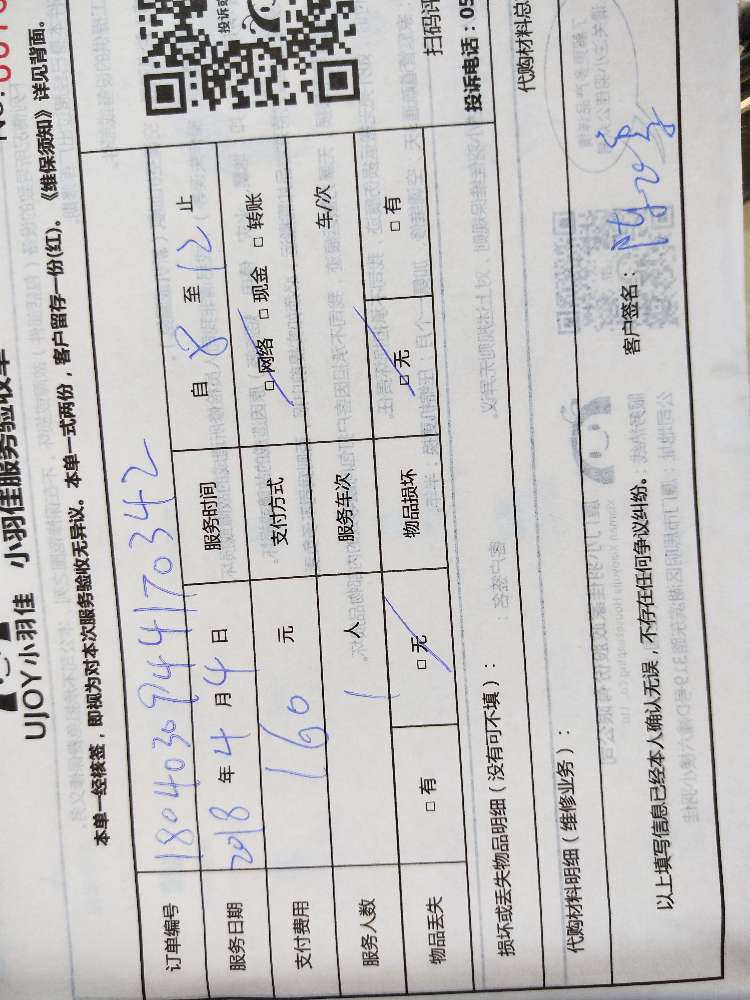 UJOY小羽佳 小羽佳服务验收单
本单一经核签，即视为对本次服务验收无异议。本单一式两份，客户留存一份(红)。《维保须知》详见背面。
订单编号 1804030944170342
服务日期 2018 年 4 月 4 日 服务时间 自 8 至 12 止
支付费用 160 元 支付方式 □ 网络 □ 现金 □ 转账
服务人数 1 人 服务车次 车/次
物品丢失 □ 有 □ 无 物品损坏 □ 无 □ 有
损坏或丢失物品明细（没有可不填）：
代购材料明细（维修业务）： 代购材料总
以上填写信息已经本人确认无误，不存在任何争议纠纷。 客户签名：
扫码评
投诉电话：05